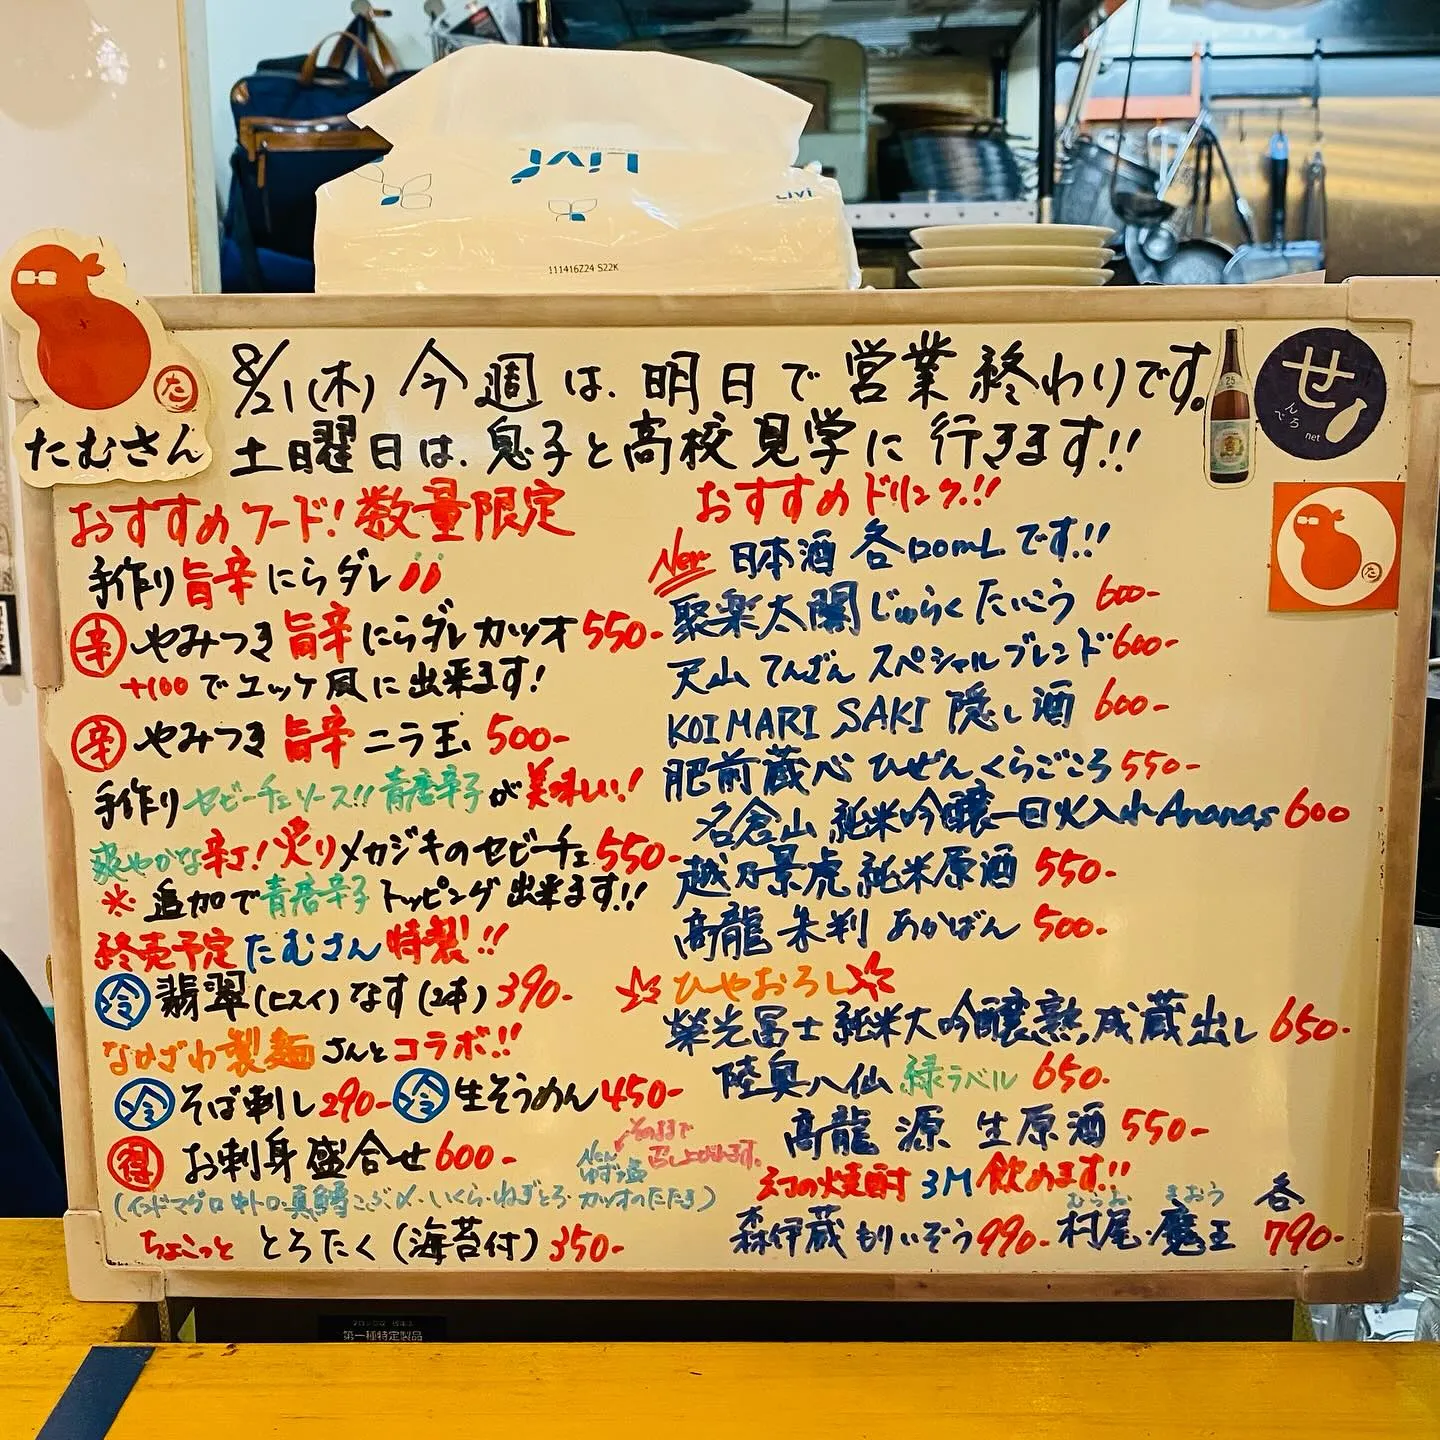 Livi
Livi
111416Z24 S22K
た
たむさん
8/21(木) 今週は、明日で営業終わりです。
土曜日は、息子と高校見学に行きます!!
25
せ
んべろ
net
た
おすすめフード!数量限定
手作り旨辛にらダレ
辛 やみつき旨辛にらダレカツオ 550-
+100でユッケ風に出来ます!
辛 やみつき旨辛ニラ玉 500-
手作りセビーチェソース!!青唐辛子が美味しい!
爽やかな辛さ!炙りメカジキのセビーチェ 550-
※追加で青唐辛子トッピング出来ます!!
終売予定 たむさん特製!!
冷 翡翠(ヒスイ)なす(2本) 390-
なかざわ製麺さんとコラボ!!
冷 そば刺し 290- 冷 生そうめん 450-
得 お刺身盛合せ 600-
New ゆず塩 そのままで召し上がれます。
(インドマグロ中トロ・真鯛こぶ〆・いくら・ねぎとろ・カツオのたたき)
ちょこっと とろたく(海苔付) 350-
おすすめドリンク!!
New 日本酒 各120mLです!!
聚楽太閤 じゅらくたいこう 600-
天山 てんざん スペシャルブレンド 600-
KOIMARI SAKI 隠し酒 600-
肥前蔵心 ひぜんくらごころ 550-
名倉山 純米吟醸一回火入れ Ananas 600
越乃景虎 純米原酒 550-
髙龍 朱判 あかばん 500-
☆ひやおろし☆
榮光冨士 純米大吟醸 熟成蔵出し 650-
陸奥八仙 緑ラベル 650-
髙龍 源 生原酒 550-
幻の焼酎 3M 飲めます!!
森伊蔵 もりいぞう 990- 村尾・魔王 各790-
むらお まおう
第一種特定製品